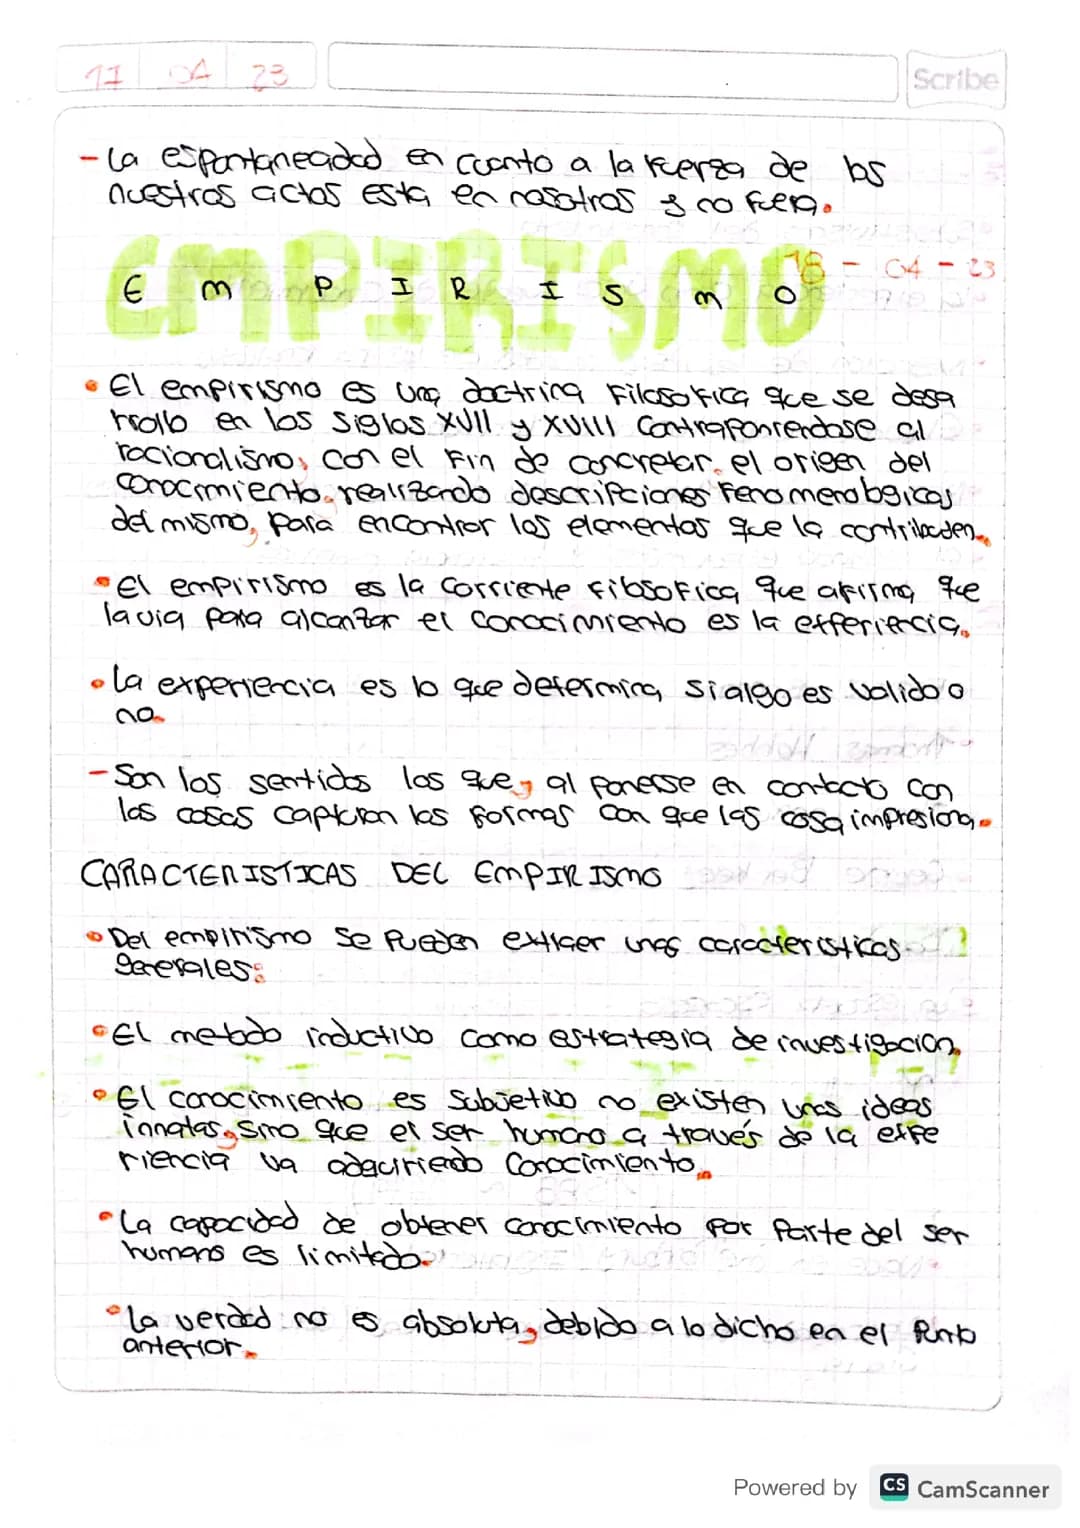 11 04 23
Scribe
- La espontaneadad en cuanto a la fuerza de los
nuestros actos esta en nosotros y no fuera.
18 - 04 - 23
EMPIRISMO
E m P I R I S m O
• El empirismo es una doctrina Filosofica que se desa
rrollo en los siglos XVII y XVIII Contraponiendose al
racionalismo, con el Fin de concretar. el origen del
conocimiento. realizando descripciones Fenomenologicas
del mismo, para encontrar los elementos que la contribuden.
• El empirismo es la corriente filosofica que afirma que
la via para alcanzar el conocimiento es la experiencia.
• La experiencia es lo que determina si algo es valido o
no.
- Son los sentidos los que, al ponerse en contacto con
las cosas capturan las formas con que las cosa impresiona.
CARACTERISTICAS DEL EMPIRISMO
• Del empirismo se pueden extraer unas caracteristicas
generales:
• El metodo inductivo como estrategia de investigacion.
• El conocimiento es subjetivo no existen unas ideas
innatas, sino que el ser humano a través de la expe
riencia va adquiriendo conocimiento.
• La capacidad de obtener conocimiento por parte del ser
humano es limitado.
• La verdad no es absoluta, debido a lo dicho en el punto
anterior.
Powered by CS CamScanner